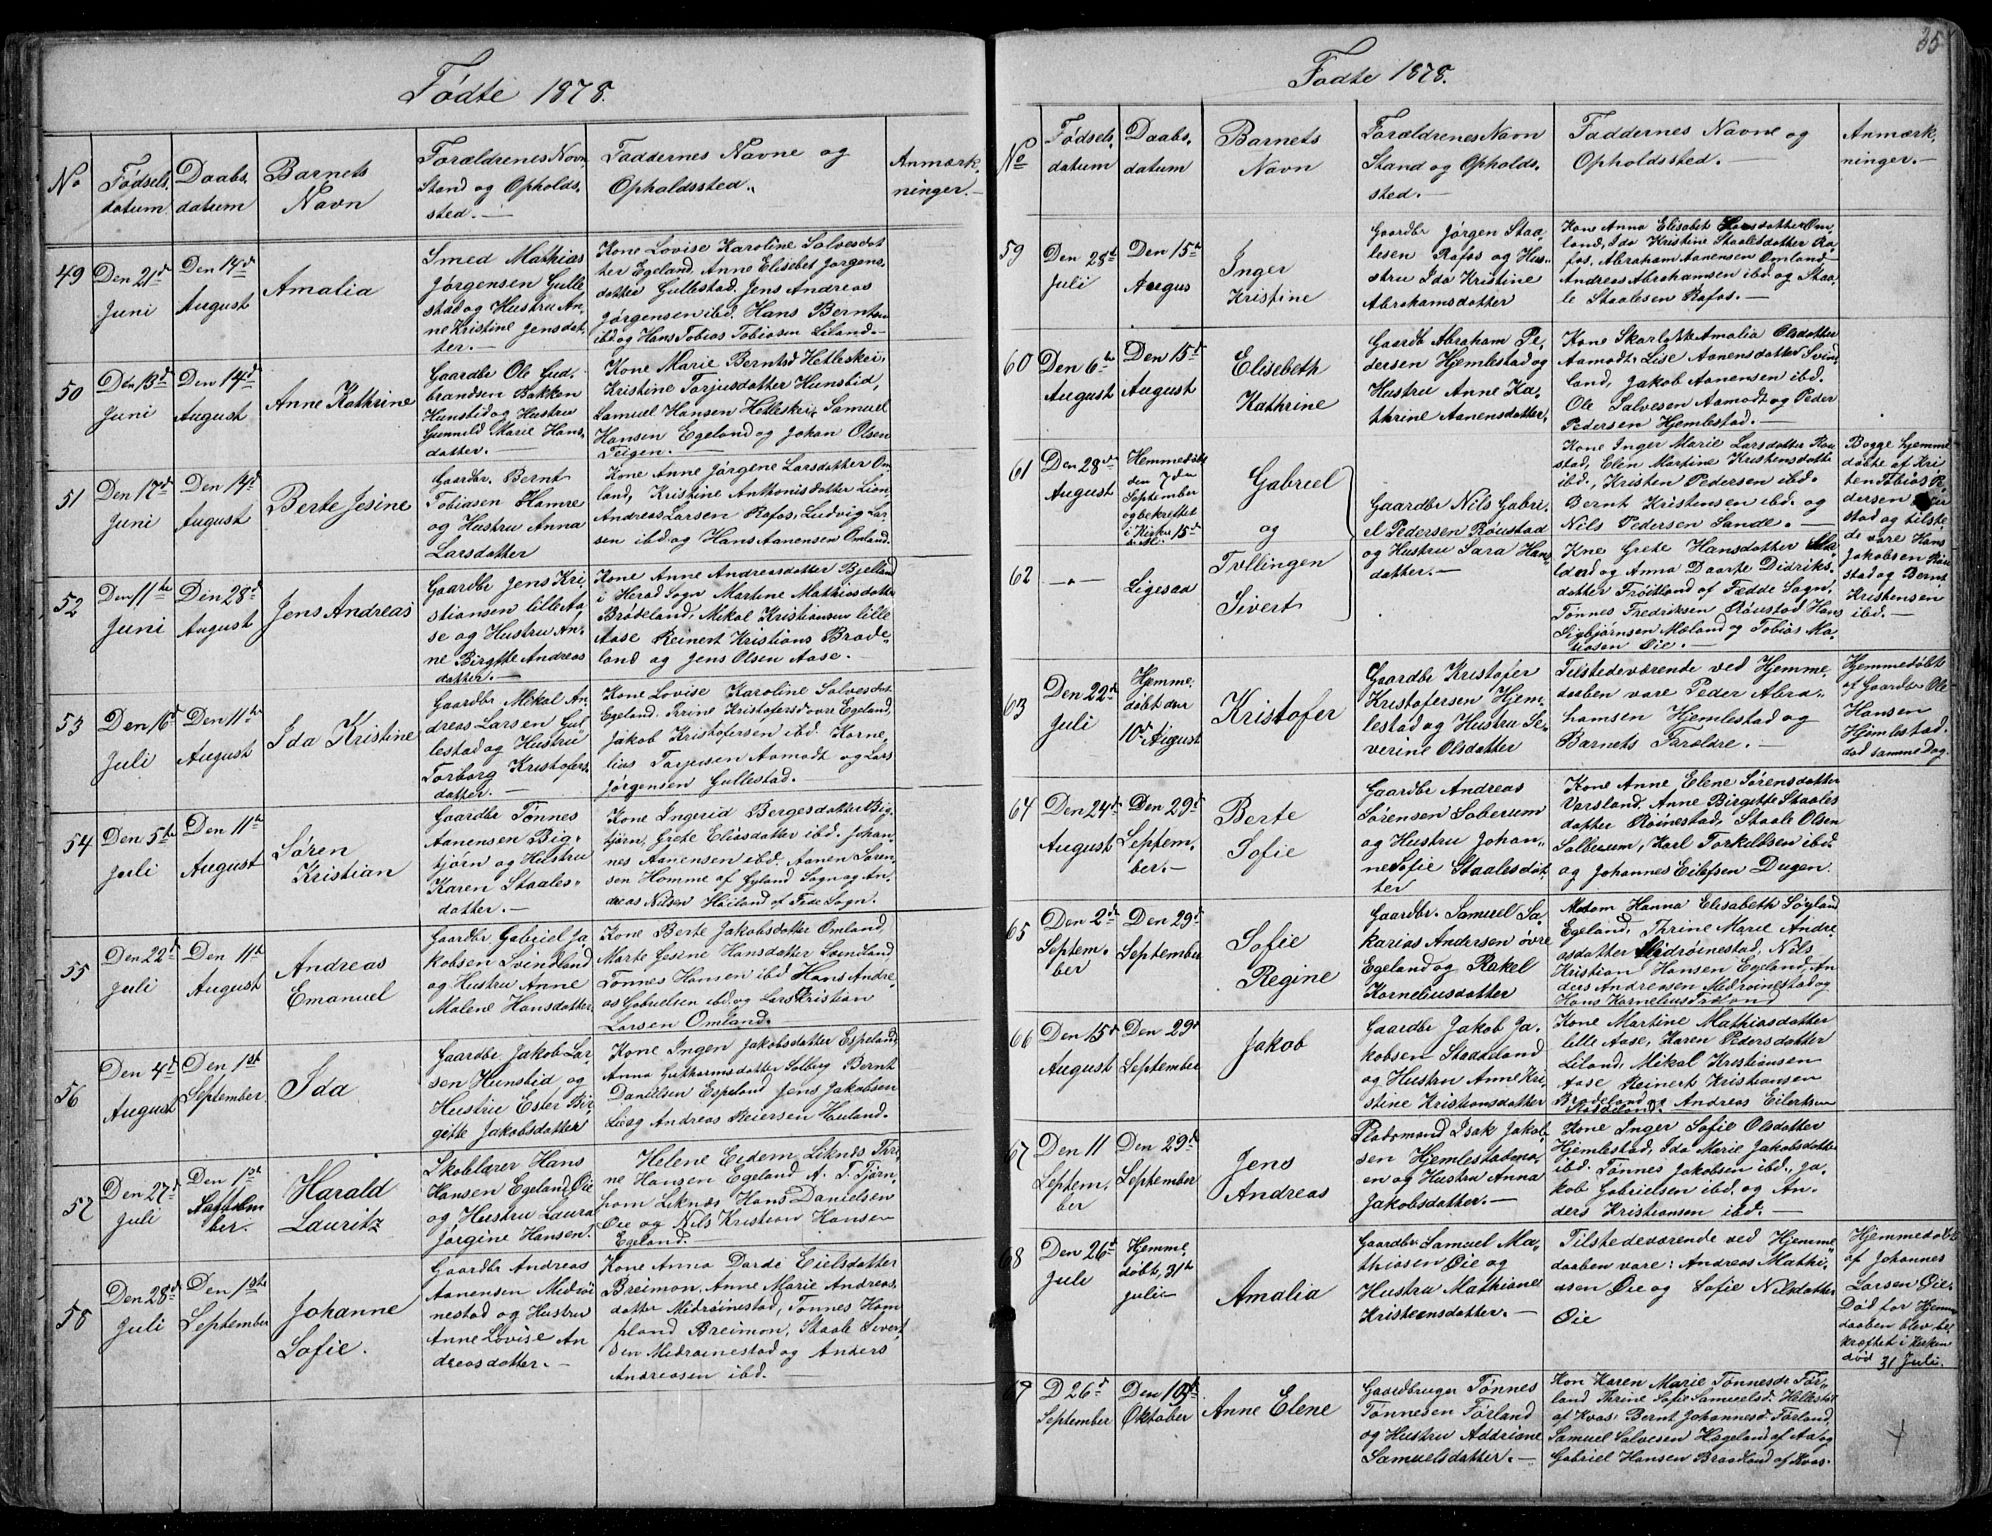 Fødte 1878.
No
Fødsels
datum
Daabs
datum
Barnets
Navn
Forældrenes Navn
Stand og Opholds
sted.
Faddernes Navne og
Opholdssted.
Anmærk
ninger.
49
Den 21d
Juni
Den 14d
August
Amalia
Smed Mathias
Jørgensen Gulle
stad og Hustru An
ne Kristine Jensdot
ter.
Kone Lovise Karoline Salvesdot
ter Egeland, Anne Elisabet Jørgens
dotter Gullestad. Jens Andreas
Jørgensen ibd. Hans Berntsen
ibd og Hans Tobias Tobiasen Liland
50
Den 13d
Juni
Den 14d
August
Anne Kathrine
Gaardbr Ole Gud
brandsen Bakken
Hunstid og Hustru
Gunnild Marie Hans
dotter.
Kone Marie Berntsd Hetleskei
Kristine Torjusdotter Hunstid,
Samuel Hansen Hetleskei, Samuel
Hansen Egeland og Johan Olsen
Teigen.
51
Den 17d
Juni
Den 14d
August
Berte Jesine
Gaardbr. Bernt
Tobiasen Hamre
og Hustru Anna
Larsdotter
Kone Anne Jørgene Larsdotter Om
land, Kristine Anthonisdotter Lian
Andreas Larsen Rafos, Ludvig Lar
sen ibd og Hans Aanensen Omland.
52
Den 11te
Juni
Den 28d
August
Jens Andreas
Gaardbr Jens Kri
stiansen lille Aa
se og Hustru An
ne Birgitte Andreas
dotter.
Kone Anne Andreasdotter Bjelland
i Herad Sogn Martine Mathiasdotter
Brådeland, Mikal Kristiansen lille
Aase Reinert Kristians Brade
land og Jens Olsen Aase.
53
Den 16d
Juli
Den 11te
August
Ida Kristine
Gaardbr Mikal An
dreas Larsen Gul
lestad og Hustru
Torborg Kristofers
dotter.
Kone Lovise Karoline Salvesdot
Egeland. Trine Kristofersd øvre Egeland,
Jakob Kristofersen ibd. Korne
lius Torjusen Aamodt og Lars
Jørgensen Gullestad.
54
Den 5te
Juli
Den 11te
August
Søren
Kristian
Gaardbr Tønnes
Aanensen Big
tjørn og Hustru
Karen Staales
dotter.
Kone Ingerid Bergesdotter Big
tjørn, Grete Eliasdotter ibd. Johan
nes Aanensen ibd. Aanen Søren
sen Homme af Gyland Sogn og An
dreas Nilsen Høiland af Fede Sogn.
55
Den 22d
juli
Den 11te
August
Andreas
Emanuel
Gaardbr Gabriel Ja
kobsen Svindland
og Hustru Anne
Malene Hansdotter
Kone Berte Jakobsdotter Omland,
Marte Jesine Hansdotter Svindland
Tønnes Hansen ibd Hans Andre
as Gabrielsen ibd. og Lars Kristian
Larsen Omland.
56
Den 4d
August
Den 1st
September
Ida
Gaardbr. Jakob Lar
sen Hunstid og
Hustru Ester Bir
gitte Jakobsdotter
Kone Ingen Jakobsdotter Espeland,
Anna Guthormsdotter Solberg Bernt
Danielsen Espeland Jens Jakobsen
Andreas Reiersen Høiland.
57
Den 27d
Juli
Den 1st
September.
Harald
Lauritz
Skolelærer Hans
Hansen Egeland, Øie
og Hustru Laura
Jørgine Hansen.
Helene Eidem, Liknes Thri
ne Hansen Egeland A. T. Tjørn
hom Liknes Hans Danielsen
Øie og Nils Kristian Hansen
Egeland.
58
Den 28d
Juli
Den 1ste
September
Johanne
Sofie.
Gaardbr Andreas
Aanensen Midrøi
nestad og Hustru
Anne Lovise An
dreasdotter.
Kone Anna Dorde Eielsdotter
Breimon, Anne Marie Andreas
dotter Midrøinestad, Tønnes Hom
pland Breimon, Staale Sivert
sen Midrøinestad og Anders
Andreasen ibd.
35
Fødte 1878.
No
Fødsels
datum
Daabs
datum
Barnets
Navn
Forældrenes Navn
Stand og Opholds
sted.
Faddernes Navne og
Opholdssted.
Anmærk
ninger.
59
Den 28d
Juli
Den 15de
Augus
Inger
Kristine
Gaardbr Jørgen Staa
lesen Rafos og Hu
stru Ida Kristine
Abrahamsdotter
Kone Anna Elisabet Larsdotter Om
land, Ida Kristine Staalesdotter Ra
fos, Abraham Aanensen Omland
Andreas Abrahamsen ibd og Staa
le Staalesen Rafos.
60
Den 6te
August
Den 15d
August
Elisebeth
Kathrine
Gaardb Abraham Pe
dersen Hjemlestad og
Hustru Anne Ka
thrine Aanensdotter.
Kone Skarlotte Amalia Olsdotter
Aamodt, Lise Aanensdotter Svind
land, Jakob Aanensen ibd.
Ole Salvesen Aamodt og Peder
Pedersen Hjemlestad.
61
Den 28de
August
Hemmedøbt
den 7da
September
og bekræftet
i Kirken 15d
Gabriel
og
Gaardbr Nils Gabri
el Pedersen Røiestad
og Hustru Sara Han
dotter.
Kone Inger Marie Larsdotter Røi
stad, Elen Martine Kristensdotte
ibd, Kristen Pedersen ibd.
Bernt Kristensen ibd. og
Nils Pedersen Sande.
Begge hjemme
døbte af Kri
sten Tobias Pe
dersen
stad og tilste
de vare Hans
Jakobsen Røi
stad og Bernt
Kristensen
ibd.
62
— " —
Ligesaa
Tvllingen
Sivert
Kne Grete Hansdotter
og Anna Daarte Didriks
dotter Frøitland af Fedde Sogn,
Tønnes Fredriksen Røiestad Hans
Sigbjørnsen Moland og Tobias Ma
thiasen Øie.
63
Den 22d
Juli
Hjemme
døbt den
10d August
Kristofer
Gaardbr Kristofer
Kristofersen Hjem
lestad og Hustru Se
verine Olsdotter
Tilstedeværende ved Hjemme
daaben vare Peder Abra
hamsen Hjemlestad og
Barnets Forældre.
Hjemmedøbt
af Gaardbr Ole
Hansen
Hjemlestad
død samme Dag.
64
Den 24d
August
Den 29d
Septem
ber.
Berte
Sofie
Gaardbr Andreas
Sørensen Solesum
og Hustru Johan
ne Sofie Staalesdot
ter
Kone Anne Elene Sørensdotter
Varsland. Anne Birgitte Staales
dotter Røinestad, Staale Olsen
Sallesum, Karl Torkildsen ibd.
og Johannes Eilefsen Dugen.
65
Den 2d
Septem
ber
Den 29d
September
Sofie
Regine
Gaardbr. Samuel Sa
karias Andersen øvre
Egeland og Rakel
Korneliusdotter
Madam Hanna Elisabeth Søyland
Egeland, Thrine Marie Andre
asdotter Midrøinestad, Nils
Kristian Hansen Egeland, An
ders Andreasen Midrøinestad og
Hans Kornelius
66
Den 15d
August
Den 29d
September
Jakob
Gaardbr Jakob Ja
kobsen Stadeland
og Hustru Anne Kri
stine Kristiansdotter
Kone Martine Mathiasdotter
lille Aase, Karen Pedersdotter
Liland, Mikal Kristiansen
Aase Reinert Kristiansen
Bradeland og Andreas Eilertsen
Stadeland.
67
Den 11
Septem
ber
Den 29d
September
Jens
Andreas
Pladsmand Isak Jakob
sen Hjemlestadmo
en og Hustru Anna
Jakobsdotter.
Kone Inger Sofie Olsdotter
Hjemlestad, Ida Marie Jakobsdotter
ibd. Tønnes Jakobsen ibd., Ja
kob Gabrielsen ibd. og An
ders Kristiansen ibd.
68
Den 26d
Juli
Hjemme
døbt, 31te
juli
Amalia
Gaardbr Samuel Ma
thiasen Øie og
Hustru Mathiane
Kristensdotter.
Tilstedeværende ved Hjemme
daaben vare: Andreas Mathi
asen Øie og Sofie Nilsdotter
Øie
Hjemmedøbt
af Johannes
Larsen Øie
Død før Hjem
daaben blev be
kræftet i Kirken
død 31 Juli.
69
D 26d
September
Den 10d
Oktober
Anne Elene
Gaardbruger Tønnes
Tønnesen Førland
og Hustru Addriane
Samuelsdotter.
Kon Karen Marie Tønnesd. Før
land, Thrine Sofie Samuelsd. Hellestøl
af Kvas, Bernt Johannesd. Førland,
Samuel Salvesen Hægeland af Aa og
Gabriel Hansen Braadland af Kvas.